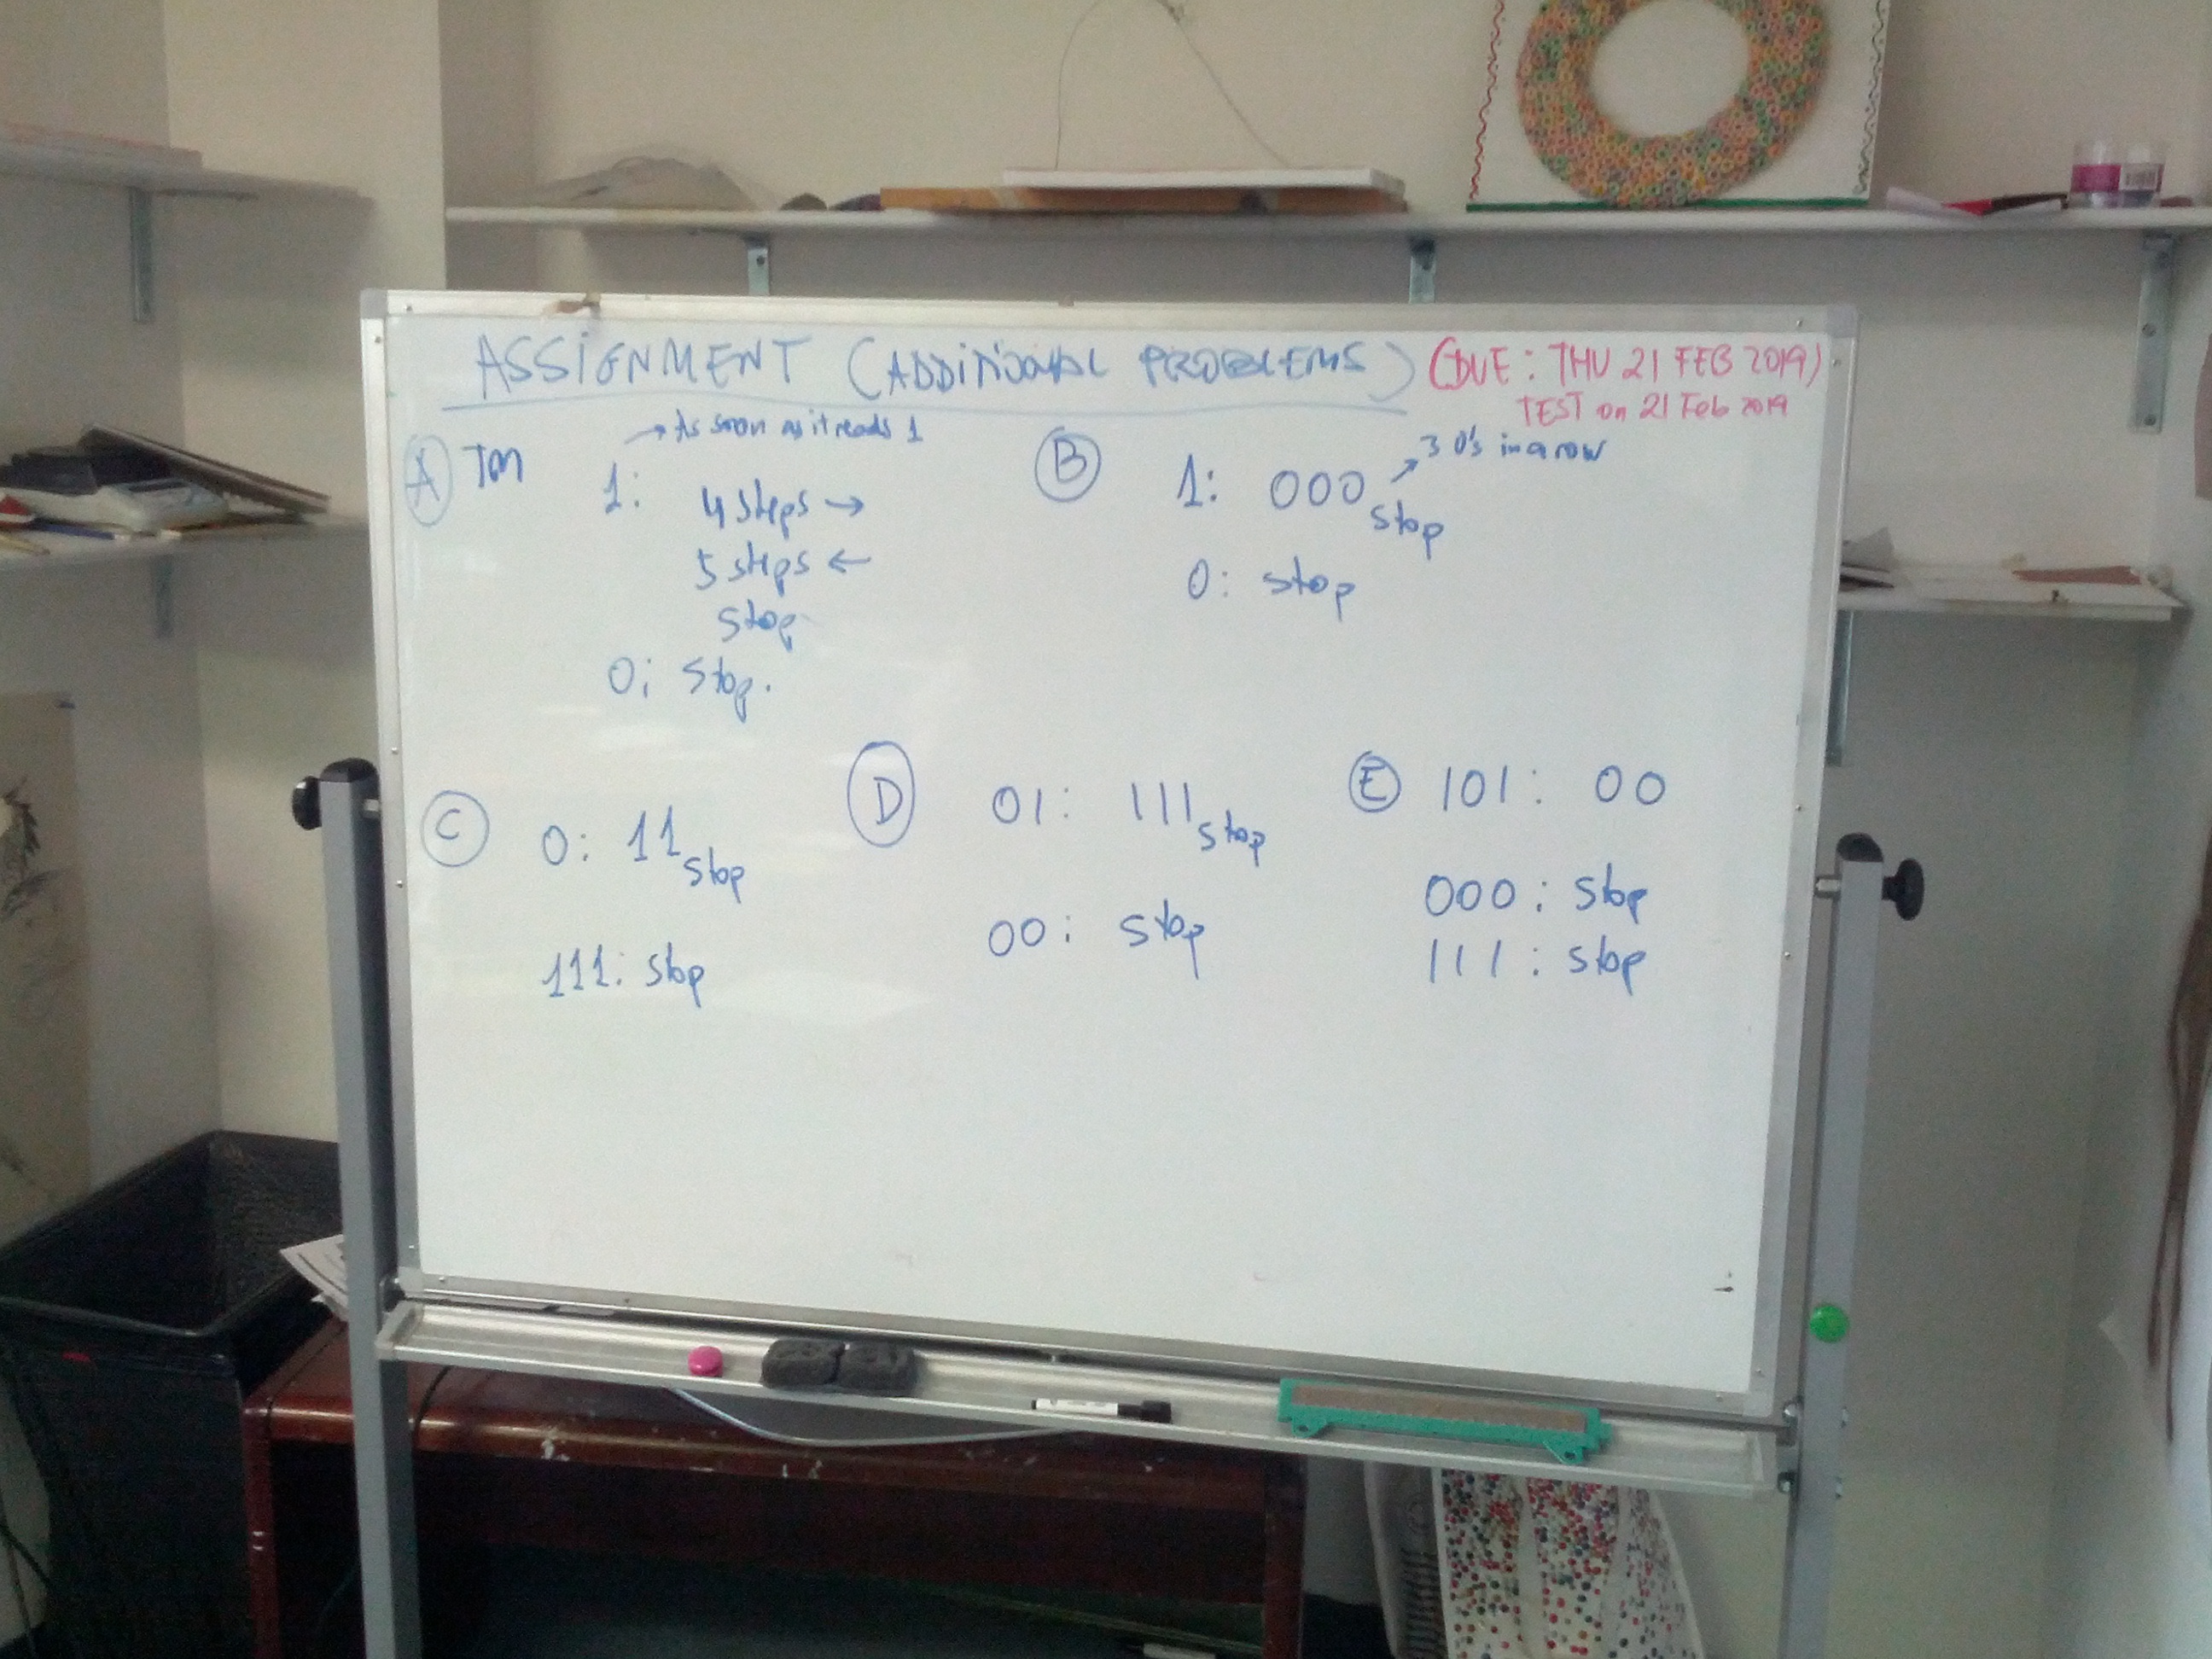 ASSIGNMENT (ADDITIONAL PROBLEMS) (DUE: THU 21 FEB 2019)
TEST on 21 Feb 2019
→ As soon as it reads 1
A TM 1: 4 steps →
5 steps ←
stop
0: stop.
B 1: 000 stop → 3 0's in a row
0: stop
C 0: 11 stop
111: stop
D 01: 111 stop
00: stop
E 101: 00
000: stop
111: stop